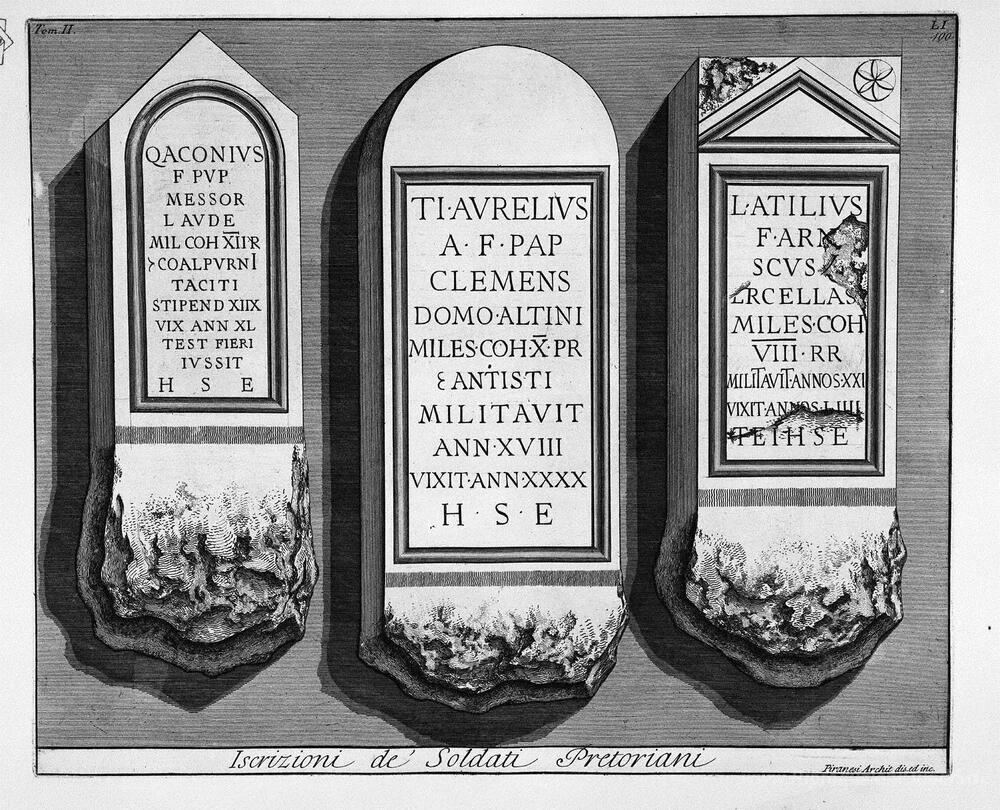 Tom. II.
LI
190
QACONIVS
F PVP
MESSOR
L AVDE
MIL COH X̅I̅I̅ R
COALPVRNI
TACITI
STIPEND XIIX
VIX ANN XL
TEST FIERI
IVSSIT
H S E
TI·AVRELIVS
A·F·PAP
CLEMENS
DOMO·ALTINI
MILES·COH·X̅·PR
ANTISTI
MILITAVIT
ANN·XVIII
VIXIT·ANN·XXXX
H·S·E
L·ATILIVS
F·ARN
SCVS
ERCELLAS
MILES·COH
V̅I̅I̅I̅·RR
MILITAVIT·ANNOS·XXI
VIXIT·ANNOS·LIIII
TEIHSE
Iscrizioni de' Soldati Pretoriani
Piranesi Archit dis. ed inc.